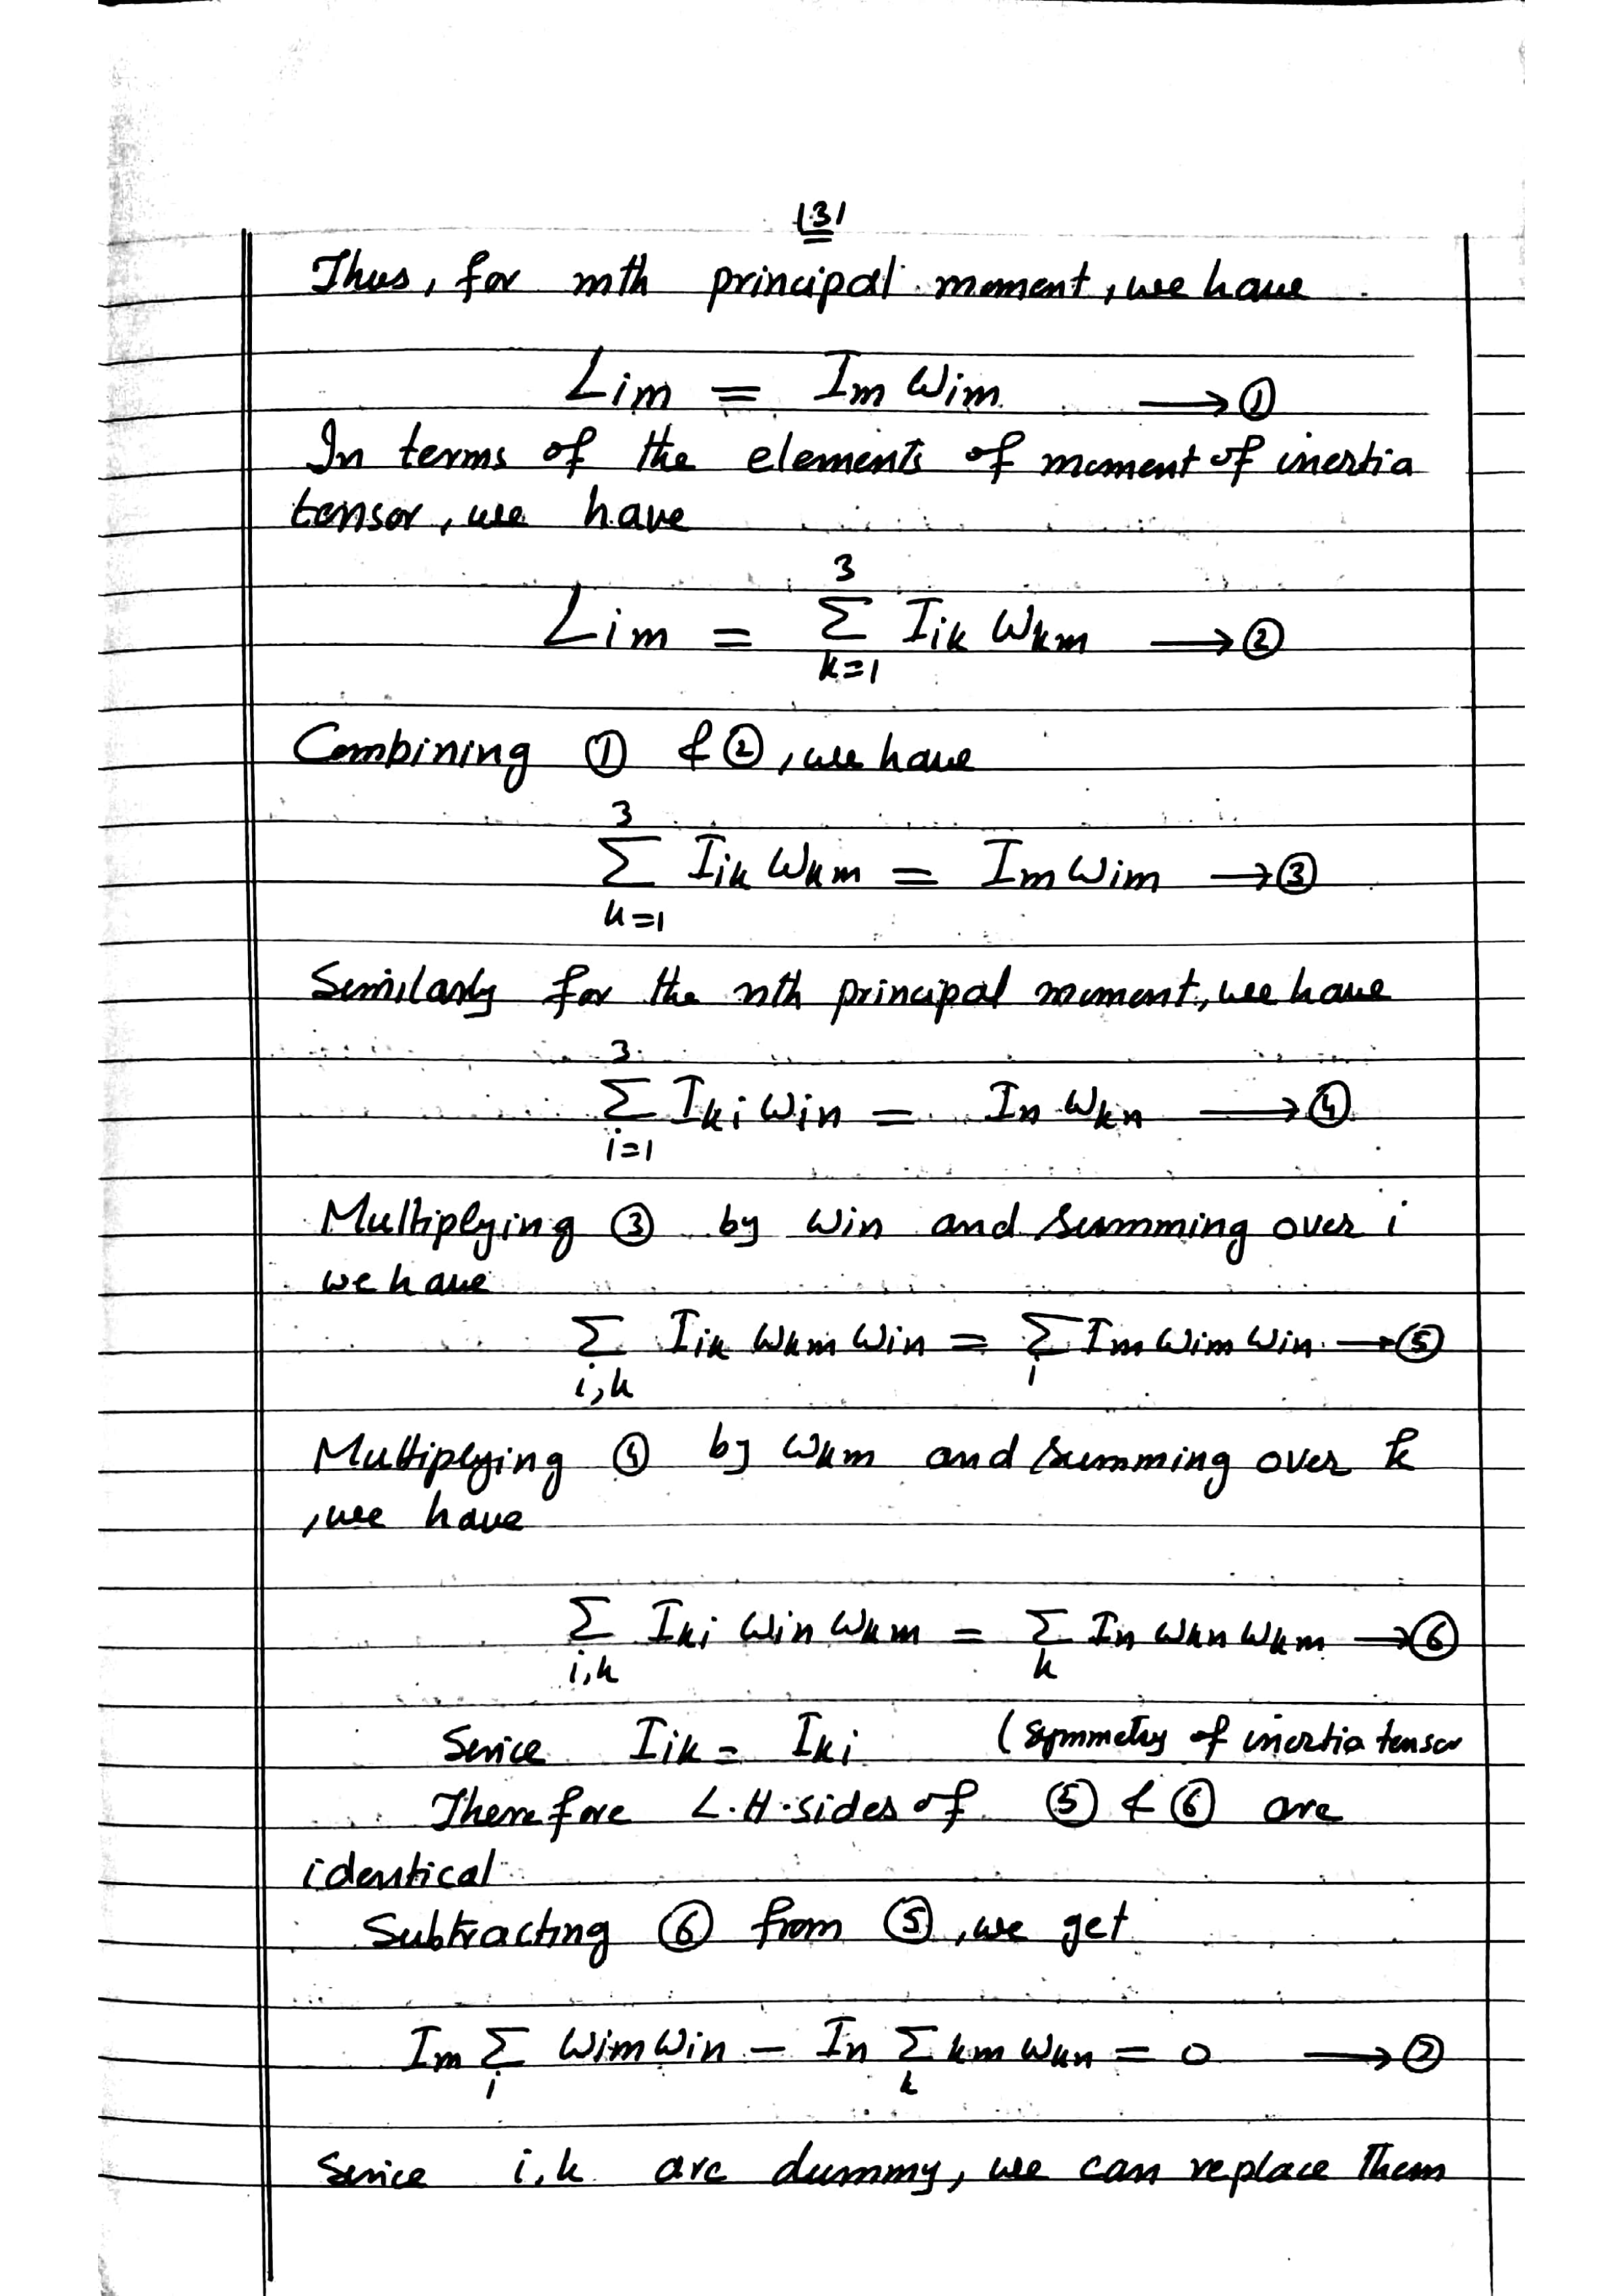 131
Thus, for mth principal moment, we have
Lim = Im ωim → ①
In terms of the elements of moment of inertia
tensor, we have
Lim = 3 Σ k=1 Iik ωkm → ②
Combining ① & ②, we have
3 Σ k=1 Iik ωkm = Im ωim → ③
Similarly for the nth principal moment, we have
3 Σ i=1 Iki ωin = In ωkn → ④
Multiplying ③ by ωin and summing over i
we have
Σ i,k Iik ωkm ωin = Σ i Im ωim ωin → ⑤
Multiplying ④ by ωkm and summing over k
, we have
Σ i,k Iki ωin ωkm = Σ k In ωkn ωkm → ⑥
Sence Iik = Iki (symmetry of inertia tensor
Therefore L.H.sides of ⑤ & ⑥ are
identical
Subtracting ⑥ from ⑤, we get
Im Σ i ωim ωin - In Σ k km ωkn = 0 → ⑦
Sence i,k are dummy, we can replace them